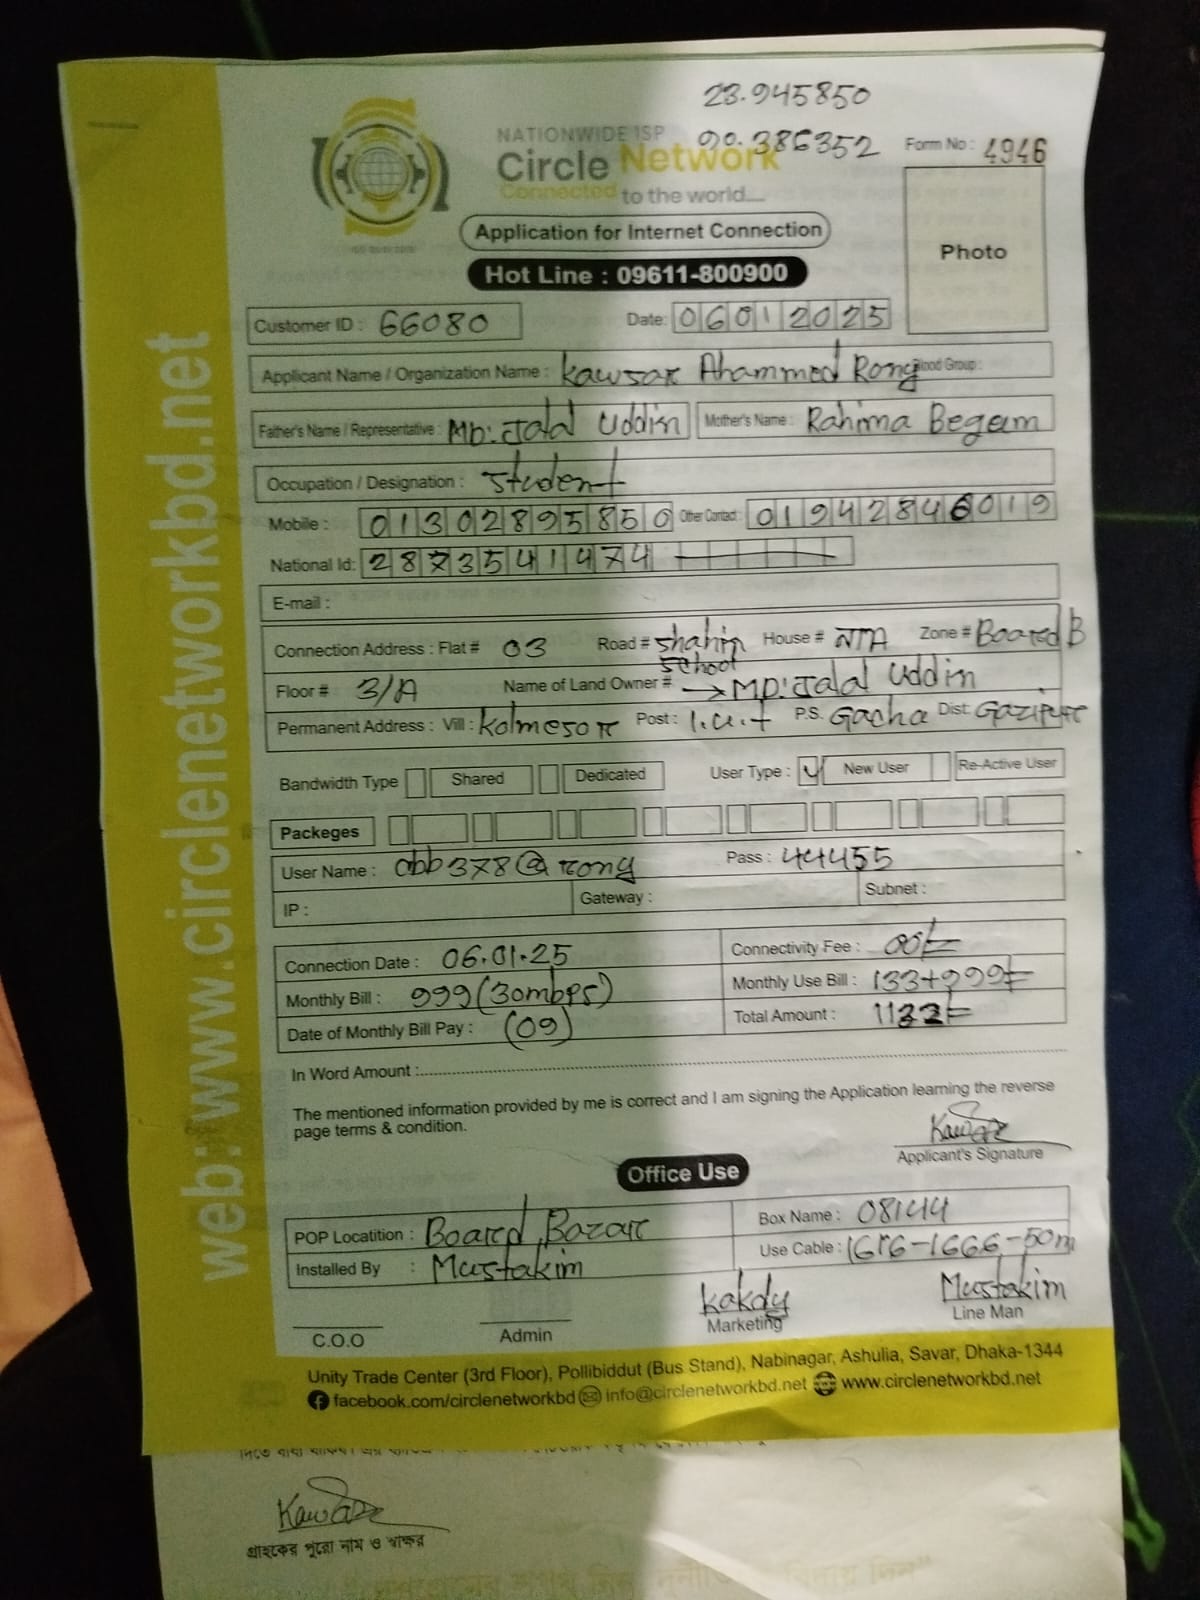 23.945850
90.386352
NATIONWIDE ISP
Circle Network
Connected to the world....
Form No : 4946
Photo
Application for Internet Connection
Hot Line : 09611-800900
Customer ID : 66080
Date: 06012025
Applicant Name / Organization Name : Kawsar Ahammed Rony Blood Group :
Father's Name / Representative : MD: Jalal Uddin Mother's Name : Rahima Begum
Occupation / Designation : Student
Mobile : 01302895850 Other Contact : 01942846019
National Id: 2873541474
E-mail :
Connection Address : Flat # 03 Road # Shahin School House # N/A Zone # Board B
Floor # 3/A Name of Land Owner # → MD: Jalal Uddin
Permanent Address : Vill : Kolmesor Post : I.U.T P.S. Gacha Dist: Gazipur
Bandwidth Type Shared Dedicated User Type : New User Re-Active User
Packeges
User Name : abb378@rony Pass : 44455
IP : Gateway : Subnet :
Connection Date : 06.01.25 Connectivity Fee : 00/=
Monthly Bill : 999(30mbps) Monthly Use Bill : 133+999/=
Date of Monthly Bill Pay : (09) Total Amount : 1132/=
In Word Amount :
The mentioned information provided by me is correct and I am signing the Application learning the reverse
page terms & condition.
Kawsar
Applicant's Signature
Office Use
POP Locatition : Board Bazar Box Name : 08144
Installed By : Mustakim Use Cable : 1666-50m
Kakdy Mustakim
C.O.O Admin Marketing Line Man
Unity Trade Center (3rd Floor), Pollibiddut (Bus Stand), Nabinagar, Ashulia, Savar, Dhaka-1344
facebook.com/circlenetworkbd info@circlenetworkbd.net www.circlenetworkbd.net
web: www.circlenetworkbd.net
Kawsar
গ্রাহকের পুরো নাম ও স্বাক্ষর